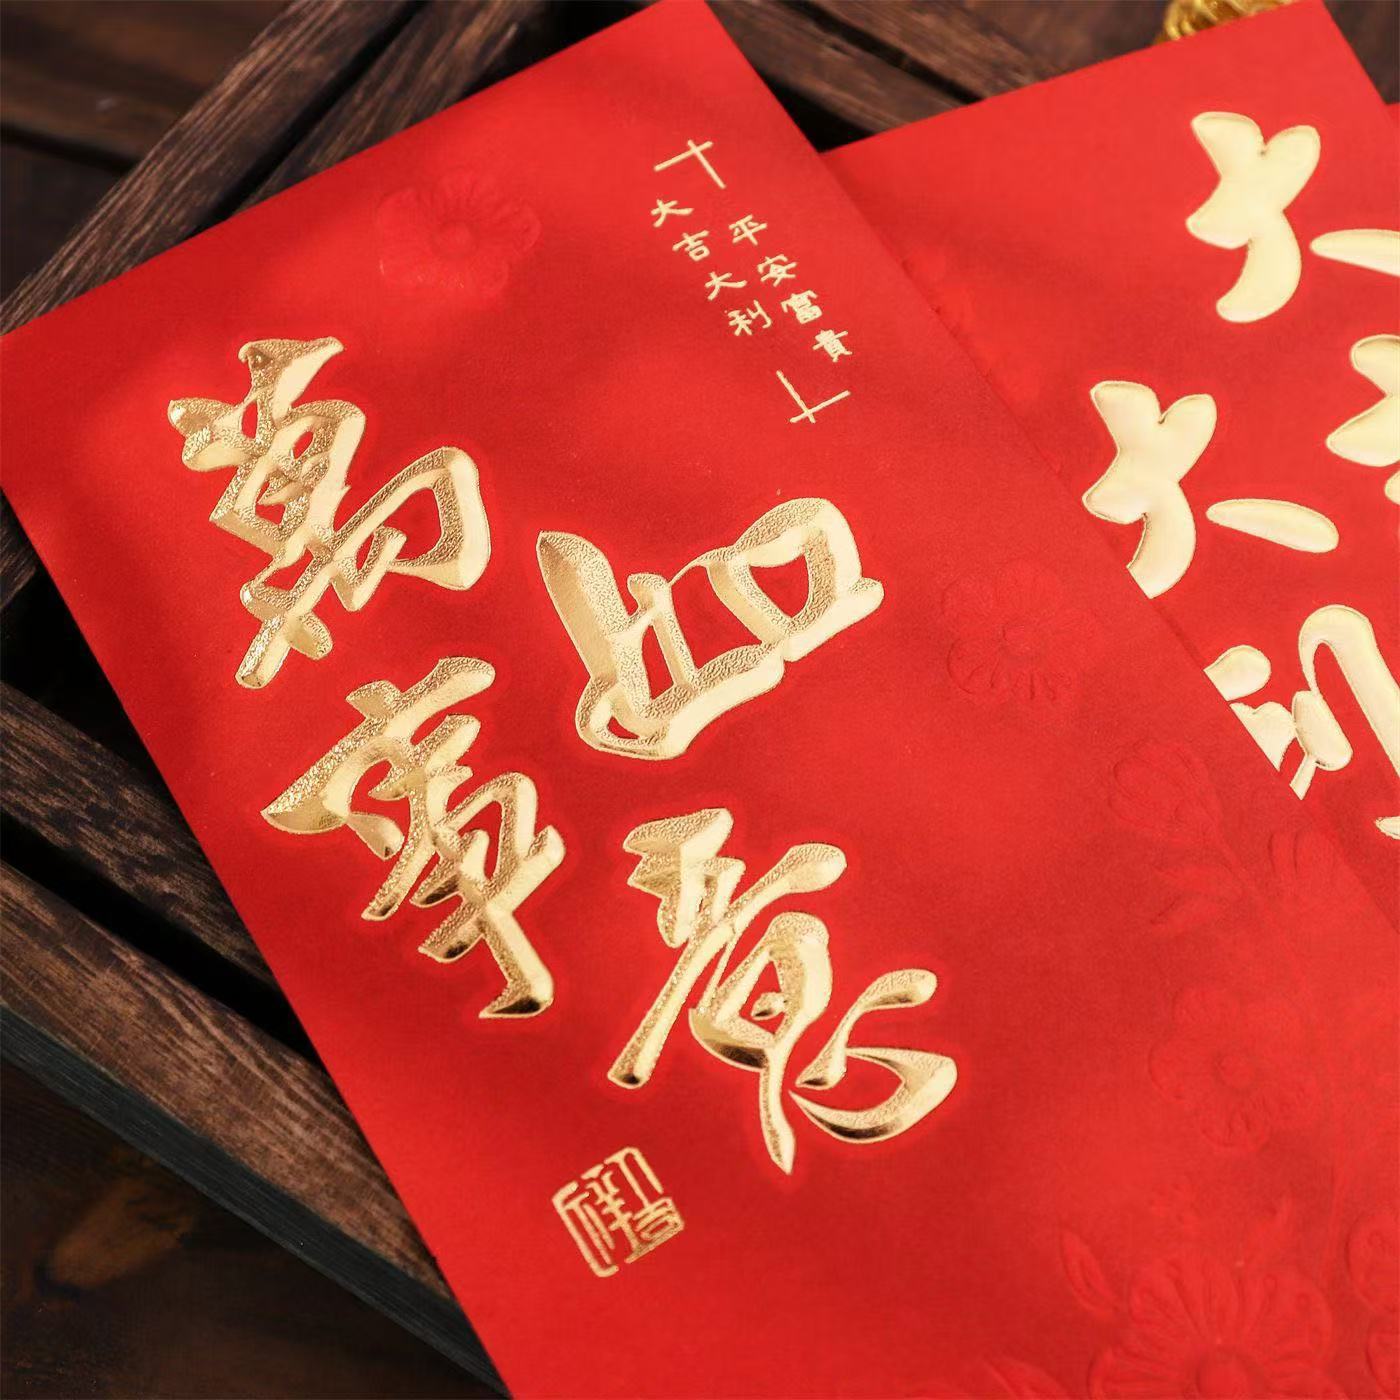 大吉大利
平安富貴
萬事
如意
吉祥
大吉
大利